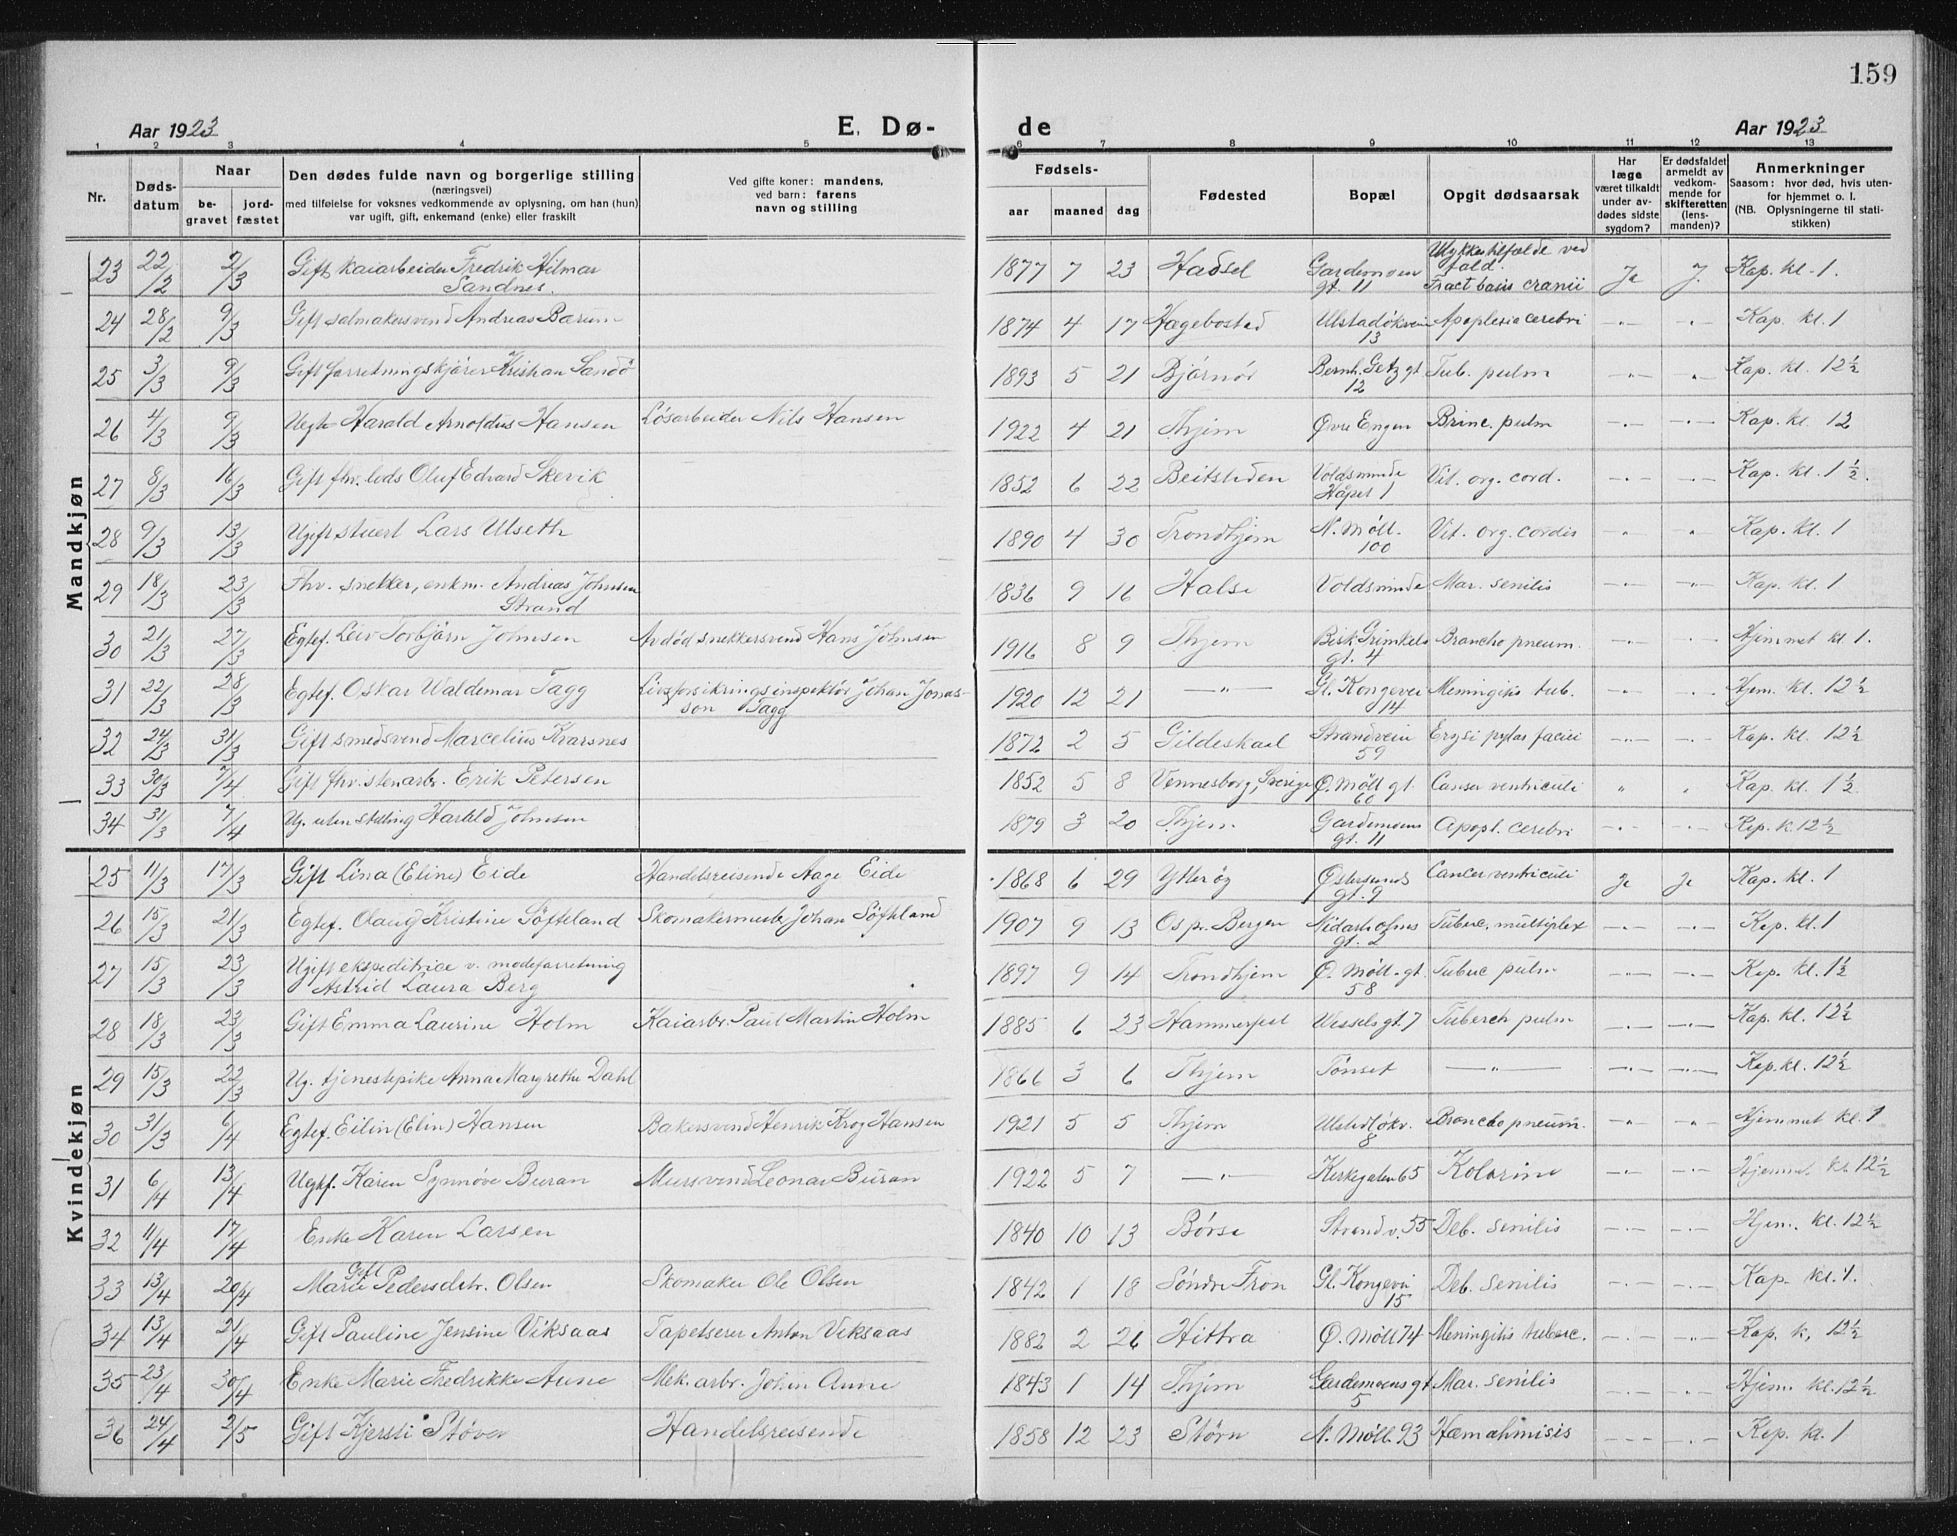 159
Aar 1923 E. Dø- de Aar 1923
1 2 3 4 5 6 7 8 9 10 11 12 13
Nr. Døds-datum Naar be-gravet jord-fæstet Den dødes fulde navn og borgerlige stilling (næringsvei) med tilføielse for voksnes vedkommende av oplysning, om han (hun) var ugift, gift, enkemand (enke) eller fraskilt Ved gifte koner: mandens, ved barn: farens navn og stilling Fødsels- aar maaned dag Fødested Bopæl Opgit dødsaarsak Har læge været tilkaldt under av-dødes sidste sygdom? Er dødsfaldet anmeldt av vedkom-mende for skifteretten (lens-manden)? Anmerkninger Saasom: hvor død, hvis uten-for hjemmet o. l. (NB. Oplysningerne til stati-stikken)
Mandkjøn
23 22/2 2/3 Gift kaiarbeider Fredrik Hilmar Sandnes. 1877 7 23 Hadsel Gardemoen gt. 11 Ulykkestilfælde ved fald. Fract basis cranii Ja J. Kap. kl. 1.
24 28/2 9/3 Gift salmakersvend Andreas Bærum 1874 4 17 Hægebostad Ulstadløkvein 13 Apoplexia cerebri -"- -"- Kap. kl. 1
25 3/3 9/3 Gift forretningskjører Kristian Sandö 1893 5 21 Bjørnör Bernh. Getz gt 12 Tub. pulm -"- " Kap. kl. 12 1/2
26 4/3 9/3 Uegte Harald Arnoldus Hansen Løsarbeider Nils Hansen 1922 4 21 Thjem Øvre Engen pulm -"- -"- Kap. kl. 12
27 8/3 16/3 Gift fhv. lods Oluf Edvard Skevik 1852 6 22 Beitstaden Voldsminde Håpet 1 Vit. org. cord. -"- -"- Kap. kl. 1 1/2.
28 9/3 13/3 Ugift stuert Lars Ulseth 1890 4 30 Trondhjem N. Møll. 100 Vit. org. cordis " " Kap. kl. 1
29 18/3 23/3 Fhv. snekker, enkm. Andreas Johnsen Strand 1836 9 16 Halse Voldsminde Mar. senilis -"- -"- Kap. kl. 1
30 21/3 27/3 Egtef. Leiv Torbjørn Johnsen Avdød snekkersvend Hans Johnsen 1916 8 9 Thjem Bisk. Grimkels gt. 4 Broncho pneum. -"- -"- Hjemmet kl 1.
31 22/3 28/3 Egtef. Oskar Waldemar Tagg Livsforsikringsinspektør Johan Jonas-son Tagg 1920 12 21 -"- Gl. Kongevei 14 Meningitis tub. -"- -"- Hjem. kl. 12 1/2
32 24/3 31/3 Gift smedsvend Marcelius Kvarsnes 1872 2 5 Gildeskaal Strandvein 59 Erysipylas faciei -"- -"- Kap. kl. 12 1/2
33 30/3 7/4 Gift fhv. stenarb. Erik Petersen 1852 5 8 Vennesborg, Sverige Ø. Møll gt. 60 Cancer ventriculi " " Kap. kl. 1 1/2
34 31/3 7/4 Ug. uten stilling Harald Johnsen 1879 3 20 Thjem Gardemoens gt. 11 Apopl. cerebri -"- -"- Kap. k. 12 1/2
Kvindekjøn
25 11/3 17/3 Gift Lina (Eline) Eide Handelsreisende Aage Eide 1868 6 29 Ytterøy Østersunds gt. 9 Cancer ventriculi Ja Ja Kap. kl. 1
26 15/3 21/3 Egtef. Olaug Kristine Söfteland Skomakermester Johan Söfteland 1907 9 13 Os pr. Bergen Nidarholms gt. 2 Tuberc. multiplex -"- -"- Kap. kl. 1
27 15/3 23/3 Ugift ekspeditrice v. moteforretning Astrid Laura Berg 1897 9 14 Trondhjem Ø. Møll. gt. 58 Tuberc pulm -"- -"- Kap. kl. 1 1/2
28 18/3 23/3 Gift Emma Laurine Holm Kaiarbr. Paul Martin Holm 1885 6 23 Hammerfest Wessels gt. 7 Tuberch pulm -"- -"- Kap. kl. 12 1/2
29 15/3 22/3 Ug. tjenestepike Anna Margrethe Dahl 1866 3 6 Thjem Tønset -"- -"- -"- Kap. kl. 12 1/2
30 31/3 6/4 Egtef. Eilin (Elin) Hansen Bakersvend Henrik Krog Hansen 1921 5 5 Thjem Ulstadløkv. 8 Broncho pneum. -"- -"- Hjemmet kl. 1
31 6/4 13/4 Uegtf. Karen Synnøve Buran Mursvend Leonar Buran 1922 5 7 -"- Kirkegaten 65 Kolerine -"- -"- Hjemmet kl. 12 1/2
32 11/4 17/4 Enke Karen Larsen 1840 10 13 Börse Strandv. 55 Deb. senilis -"- -"- Hjem. kl. 12 1/2
33 13/4 20/4 Gift Marie Pedersdtr. Olsen Skomaker Ole Olsen 1842 1 18 Söndre Fron Gl. Kongevei 15 Deb. senilis -"- -"- Kap. kl. 1.
34 13/4 21/4 Gift Pauline Jensine Viksaas Tapetserer Anton Viksaas 1882 2 26 Hittra Ø. Møll 74 Meningitis tuberc. -"- -"- Kap. k. 12 1/2
35 23/4 30/4 Enke Marie Fredrikke Aune Mek. arbr. Johan Aune 1843 1 14 Thjem Gardemoens gt 5 Mar. senilis -"- -"- Hjem. kl. 12 1/2
36 24/4 2/5 Gift Kjersti Støver Handelsreisende 1858 12 23 Støren N. Møll. 93 Hæmatimisis -"- -"- Kap. kl. 1